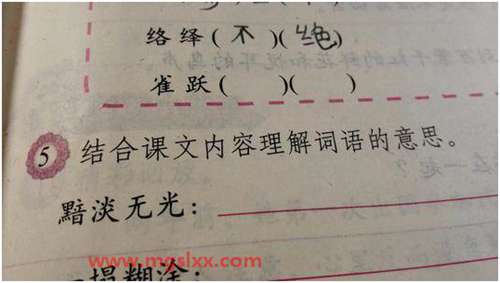 络绎(不)(绝)
雀跃(  )(  )
5 结合课文内容理解词语的意思。
黯淡无光:
一塌糊涂:
www.mcslxx.com